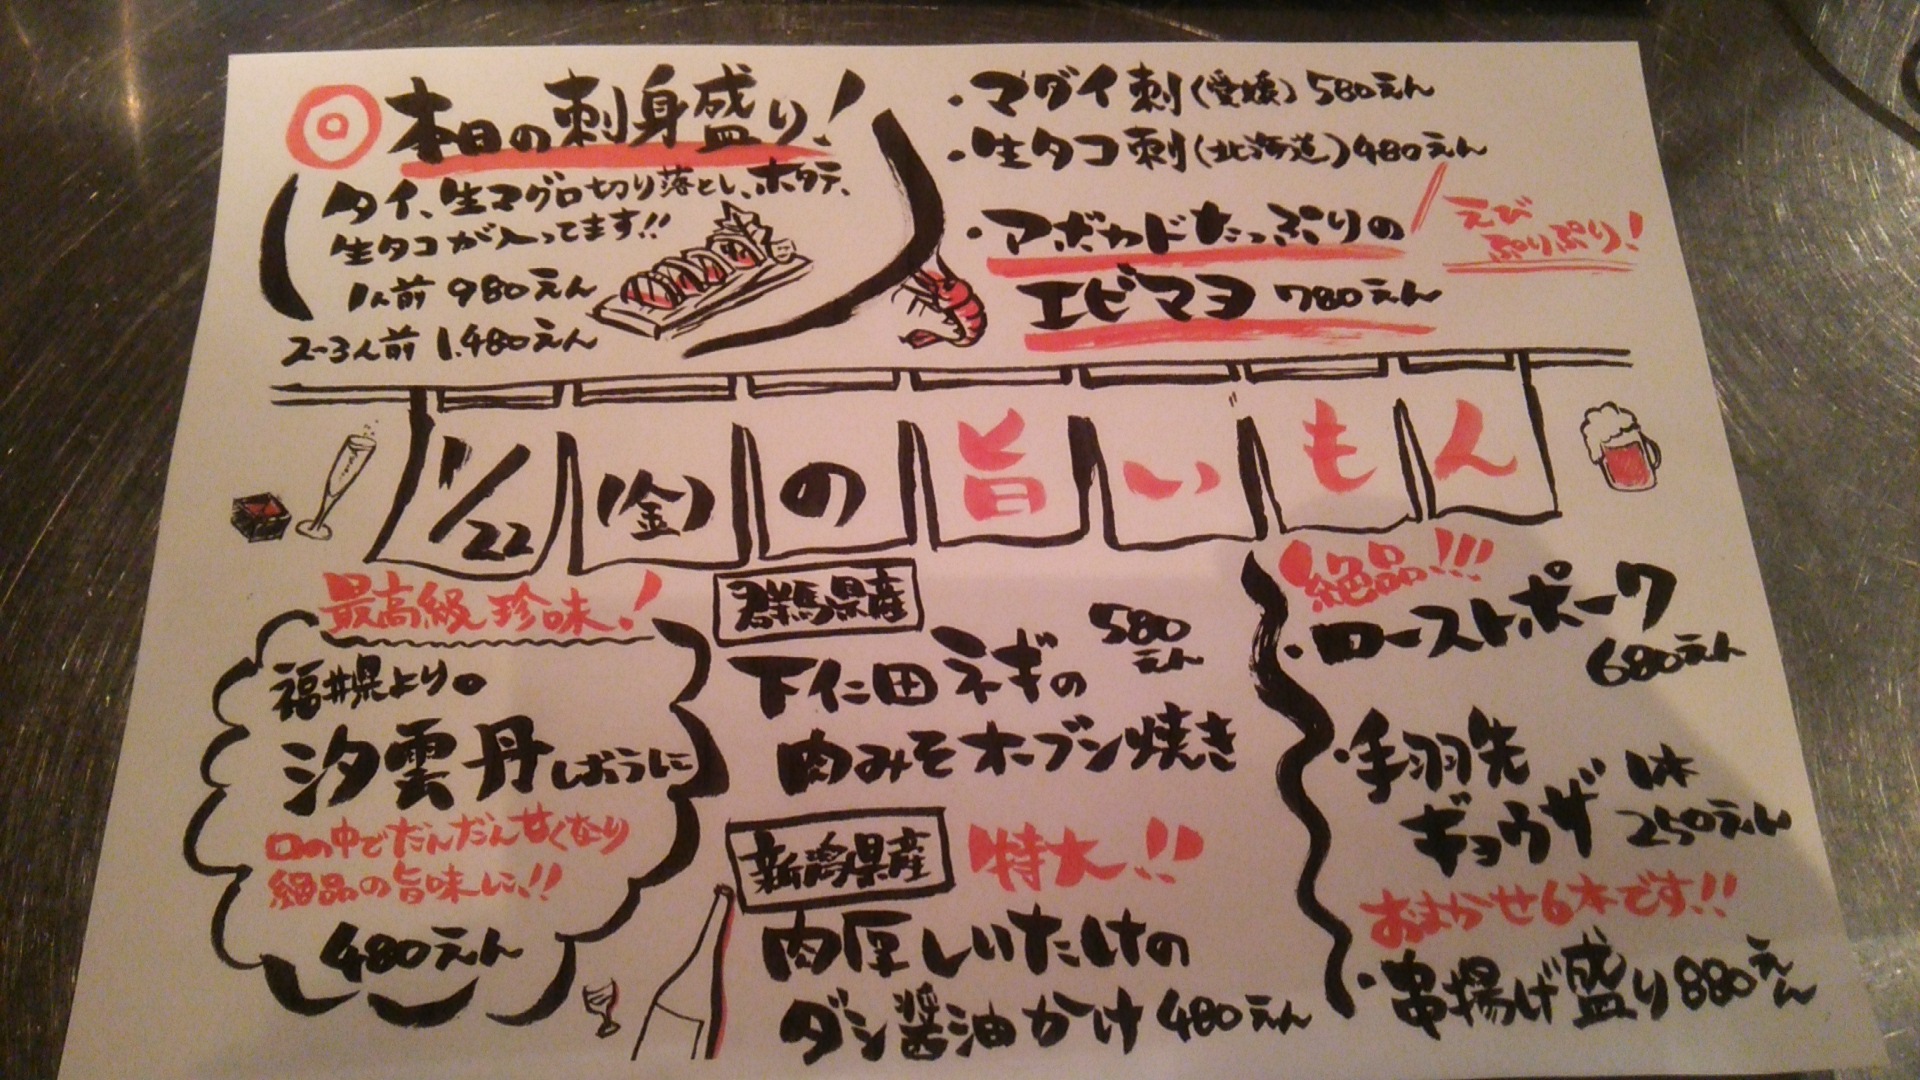 本日の刺身盛り!
タイ、生マグロ切り落とし、ホタテ、
生タコが入ってます!!
1人前 980えん
2~3人前 1.480えん
・マダイ刺(愛媛)580えん
・生タコ刺(北海道)480えん
・アボカドたっぷりの
エビマヨ 780えん
えび
ぷりぷり!
1/22(金)の旨いもん
最高級珍味!
福井県より。
汐雲丹 しおうに
口の中でだんだん甘くなり
絶品の旨味に!!
480えん
群馬県産
下仁田ネギの
肉みそオーブン焼き
580えん
新潟県産
特大!!
肉厚しいたけの
ダシ醤油かけ 480えん
絶品!!!
・ローストポーク
680えん
・手羽先
ギョウザ 1本
250えん
おまかせ6本です!!
・串揚げ盛り 880えん